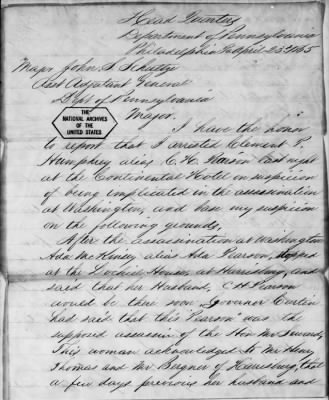 Head Quarters
Department of Pennsylvania
Philadelphia Pa April 23 1865
Major John S Schultze
Asst Adjutant General
Dept of Pennsylvania
THE
NATIONAL ARCHIVES
OF THE
UNITED STATES
Major.
I have the honor
to report that I arrested Clement R.
Humphrey alias C. H. Pearson last night
at the Continental Hotel on suspicion
of being implicated in the assassination
at Washington, and base my suspicion
on the following grounds.
After the assassination at Washington
Ada McKinsey alias Ada Pearson, stopped
at the Lochiel House, at Harrisburg, and
said that her Husband, C H Pearson
would be there soon Governor Curtin
had said that this Pearson was the
supposed assassin of the Hon Mr Seward,
This woman acknowledged to Mr Henry
Thomas and Mr Bergner of Harrisburg, that
a few days previous her husband and